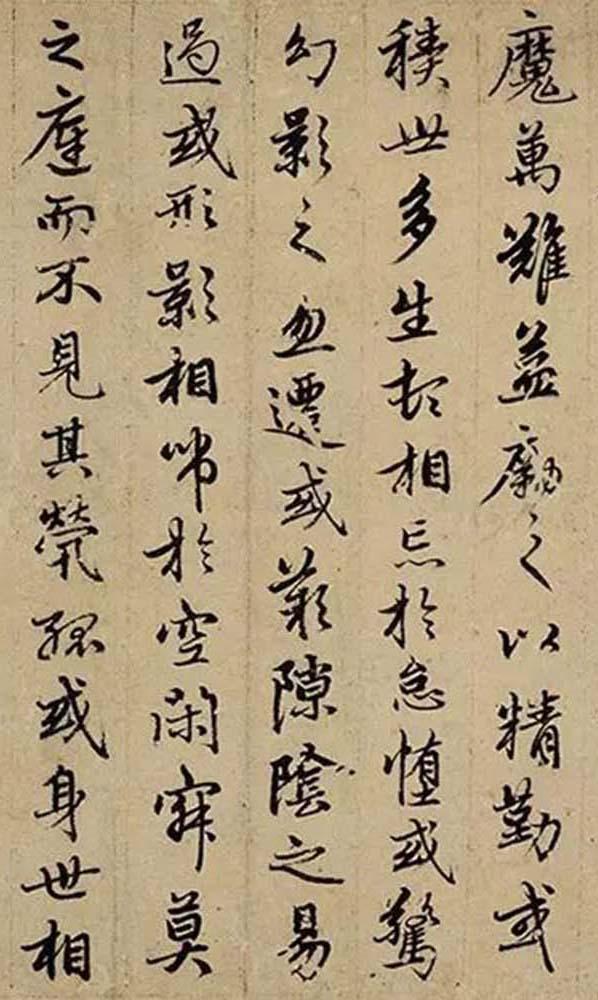 魔萬難益勵之以精勤或
積世多生相忘於怠惰或驚
幻影之忽遷或歎隙陰之易
過或形影相吊於空閑寂莫
之庭而不見其煢孤或身世相